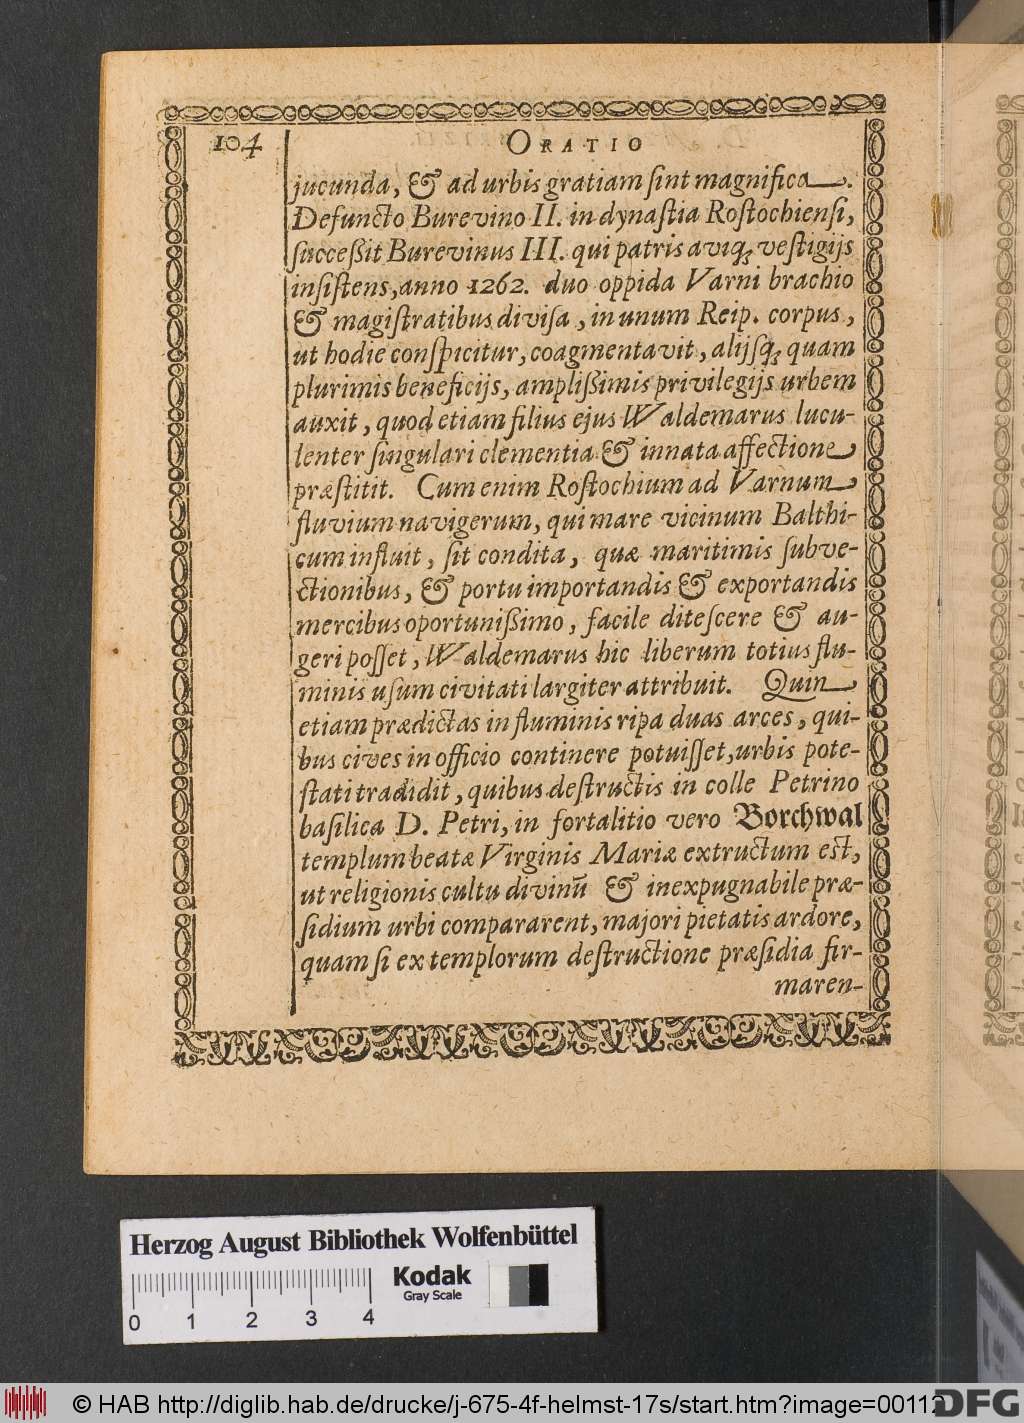 104
ORATIO
jucunda, & ad urbis gratiam ſint magnifica.
Defuncto Burevino II. in dynaſtia Roſtochienſi,
ſucceßit Burevinus III. qui patris aviq; veſtigijs
inſiſtens, anno 1262. duo oppida Varni brachio
& magiſtratibus diviſa, in unum Reip. corpus,
ut hodie conſpicitur, coagmentavit, alijſq; quam
plurimis beneficijs, amplißimis privilegijs urbem
auxit, quod etiam filius ejus Waldemarus lucu-
lenter ſingulari clementia & innata affectione
præſtitit. Cum enim Roſtochium ad Varnum
fluvium navigerum, qui mare vicinum Balthi-
cum influit, ſit condita, quæ maritimis ſubve-
ctionibus, & portu importandis & exportandis
mercibus oportunißimo, facile diteſcere & au-
geri poſſet, Waldemarus hic liberum totius flu-
minis uſum civitati largiter attribuit. Quin
etiam prædictas in fluminis ripa duas arces, qui-
bus cives in officio continere potuiſſet, urbis pote-
ſtati tradidit, quibus deſtructis in colle Petrino
baſilica D. Petri, in fortalitio vero Borchwal
templum beatæ Virginis Mariæ extructum eſt,
ut religionis cultu divinū & inexpugnabile præ-
ſidium urbi compararent, majori pietatis ardore,
quam ſi ex templorum deſtructione præſidia fir-
maren-
Herzog August Bibliothek Wolfenbüttel
Kodak
Gray Scale
0 1 2 3 4
© HAB http://diglib.hab.de/drucke/j-675-4f-helmst-17s/start.htm?image=00112
DFG